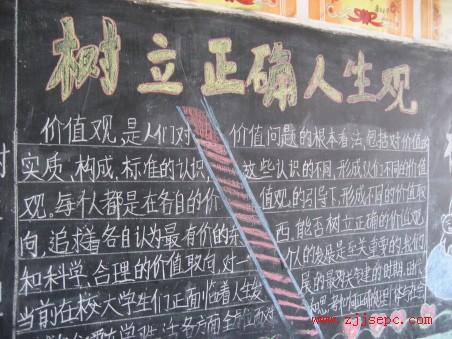 树立正确人生观
价值观,是人们对 价值问题的根本看法,包括对价值的
实质、构成、标准的认识, 这些认识的不同,形成人们不同的价值
观。每个人都是在各自的价 值观的引导下,形成不同的价值取
向,追求着各自认为最有价的东 西。能否树立正确的价值观
和科学、合理的价值取向,对一 人的发展是至关重要的
当前在校大学生们正面临着人生发 的最关键的时期,
www.zjjsepc.com